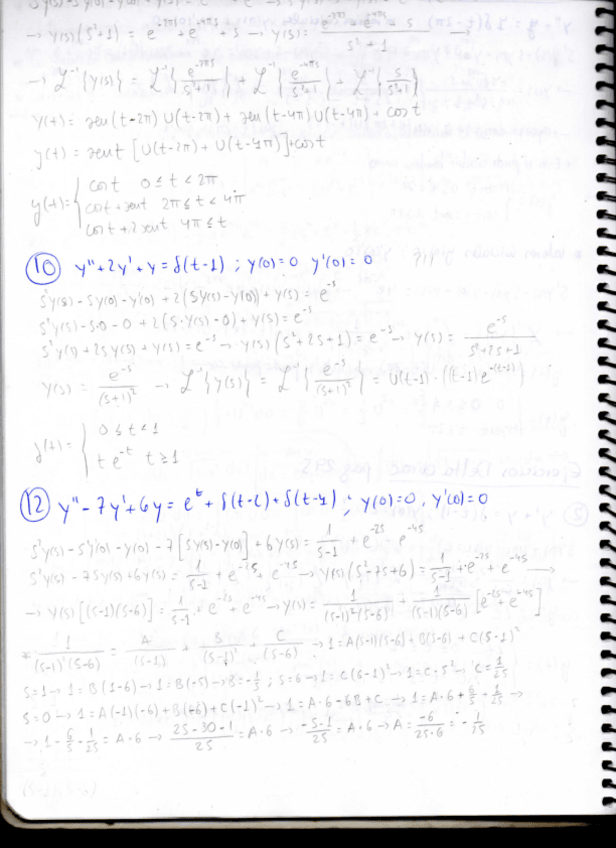 → Y(s)(s²+1) = e^{-2πs} + e^{-4πs} + s → Y(s) =
→ ℒ⁻¹{Y(s)} = ℒ⁻¹{e^{-2πs}/(s²+1)} + ℒ⁻¹{e^{-4πs}/(s²+1)} + ℒ⁻¹{s/(s²+1)}
y(t) = sen(t-2π) U(t-2π) + sen(t-4π)U(t-4π) + cos t
y(t) = sen t [U(t-2π) + U(t-4π)] + cos t
y(t) = { cos t 0 ≤ t < 2π
cos t + sen t 2π ≤ t < 4π
cos t + 2 sen t 4π ≤ t
10 y'' + 2y' + y = δ(t-1) ; y(0)=0 y'(0)=0
s²Y(s) - sy(0) - y'(0) + 2(sY(s) - y(0)) + Y(s) = e^{-s}
s²Y(s) - s·0 - 0 + 2(s·Y(s) - 0) + Y(s) = e^{-s}
s²Y(s) + 2sY(s) + Y(s) = e^{-s} → Y(s)(s²+2s+1) = e^{-s} → Y(s) = e^{-s}/(s²+2s+1)
Y(s) = e^{-s}/(s+1)² → ℒ⁻¹{Y(s)} = ℒ⁻¹{e^{-s}/(s+1)²} = U(t-1)·((t-1)e^{-(t-1)})
y(t) = { 0 ≤ t < 1
t e^{-t} t ≥ 1
12 y'' - 7y' + 6y = e^t + δ(t-2) + δ(t-4) ; y(0)=0, y'(0)=0
s²Y(s) - sy(0) - y'(0) - 7[sY(s) - y(0)] + 6Y(s) = 1/(s-1) + e^{-2s} e^{-4s}
s²Y(s) - 7sY(s) + 6Y(s) = 1/(s-1) + e^{-2s} + e^{-4s} → Y(s)(s²-7s+6) = 1/(s-1) + e^{-2s} + e^{-4s} →
→ Y(s)[(s-1)(s-6)] = 1/(s-1) + e^{-2s} + e^{-4s} → Y(s) = 1/((s-1)²(s-6)) + 1/((s-1)(s-6)) [e^{-2s} + e^{-4s}]
* 1/((s-1)²(s-6)) = A/(s-1) + B/(s-1)² + C/(s-6) → 1 = A(s-1)(s-6) + B(s-6) + C(s-1)²
s=1 → 1 = B(1-6) → 1 = B(-5) → B = -1/5 ; s=6 → 1 = C(6-1)² → 1 = C·5² → C = 1/25
s=0 → 1 = A(-1)(-6) + B(-6) + C(-1)² → 1 = A·6 - 6B + C → 1 = A·6 + 6/5 + 1/25 →
→ 1 - 6/5 - 1/25 = A·6 → (25-30-1)/25 = A·6 → (-5-1)/25 = A·6 → A = -6/(25·6) = -1/25